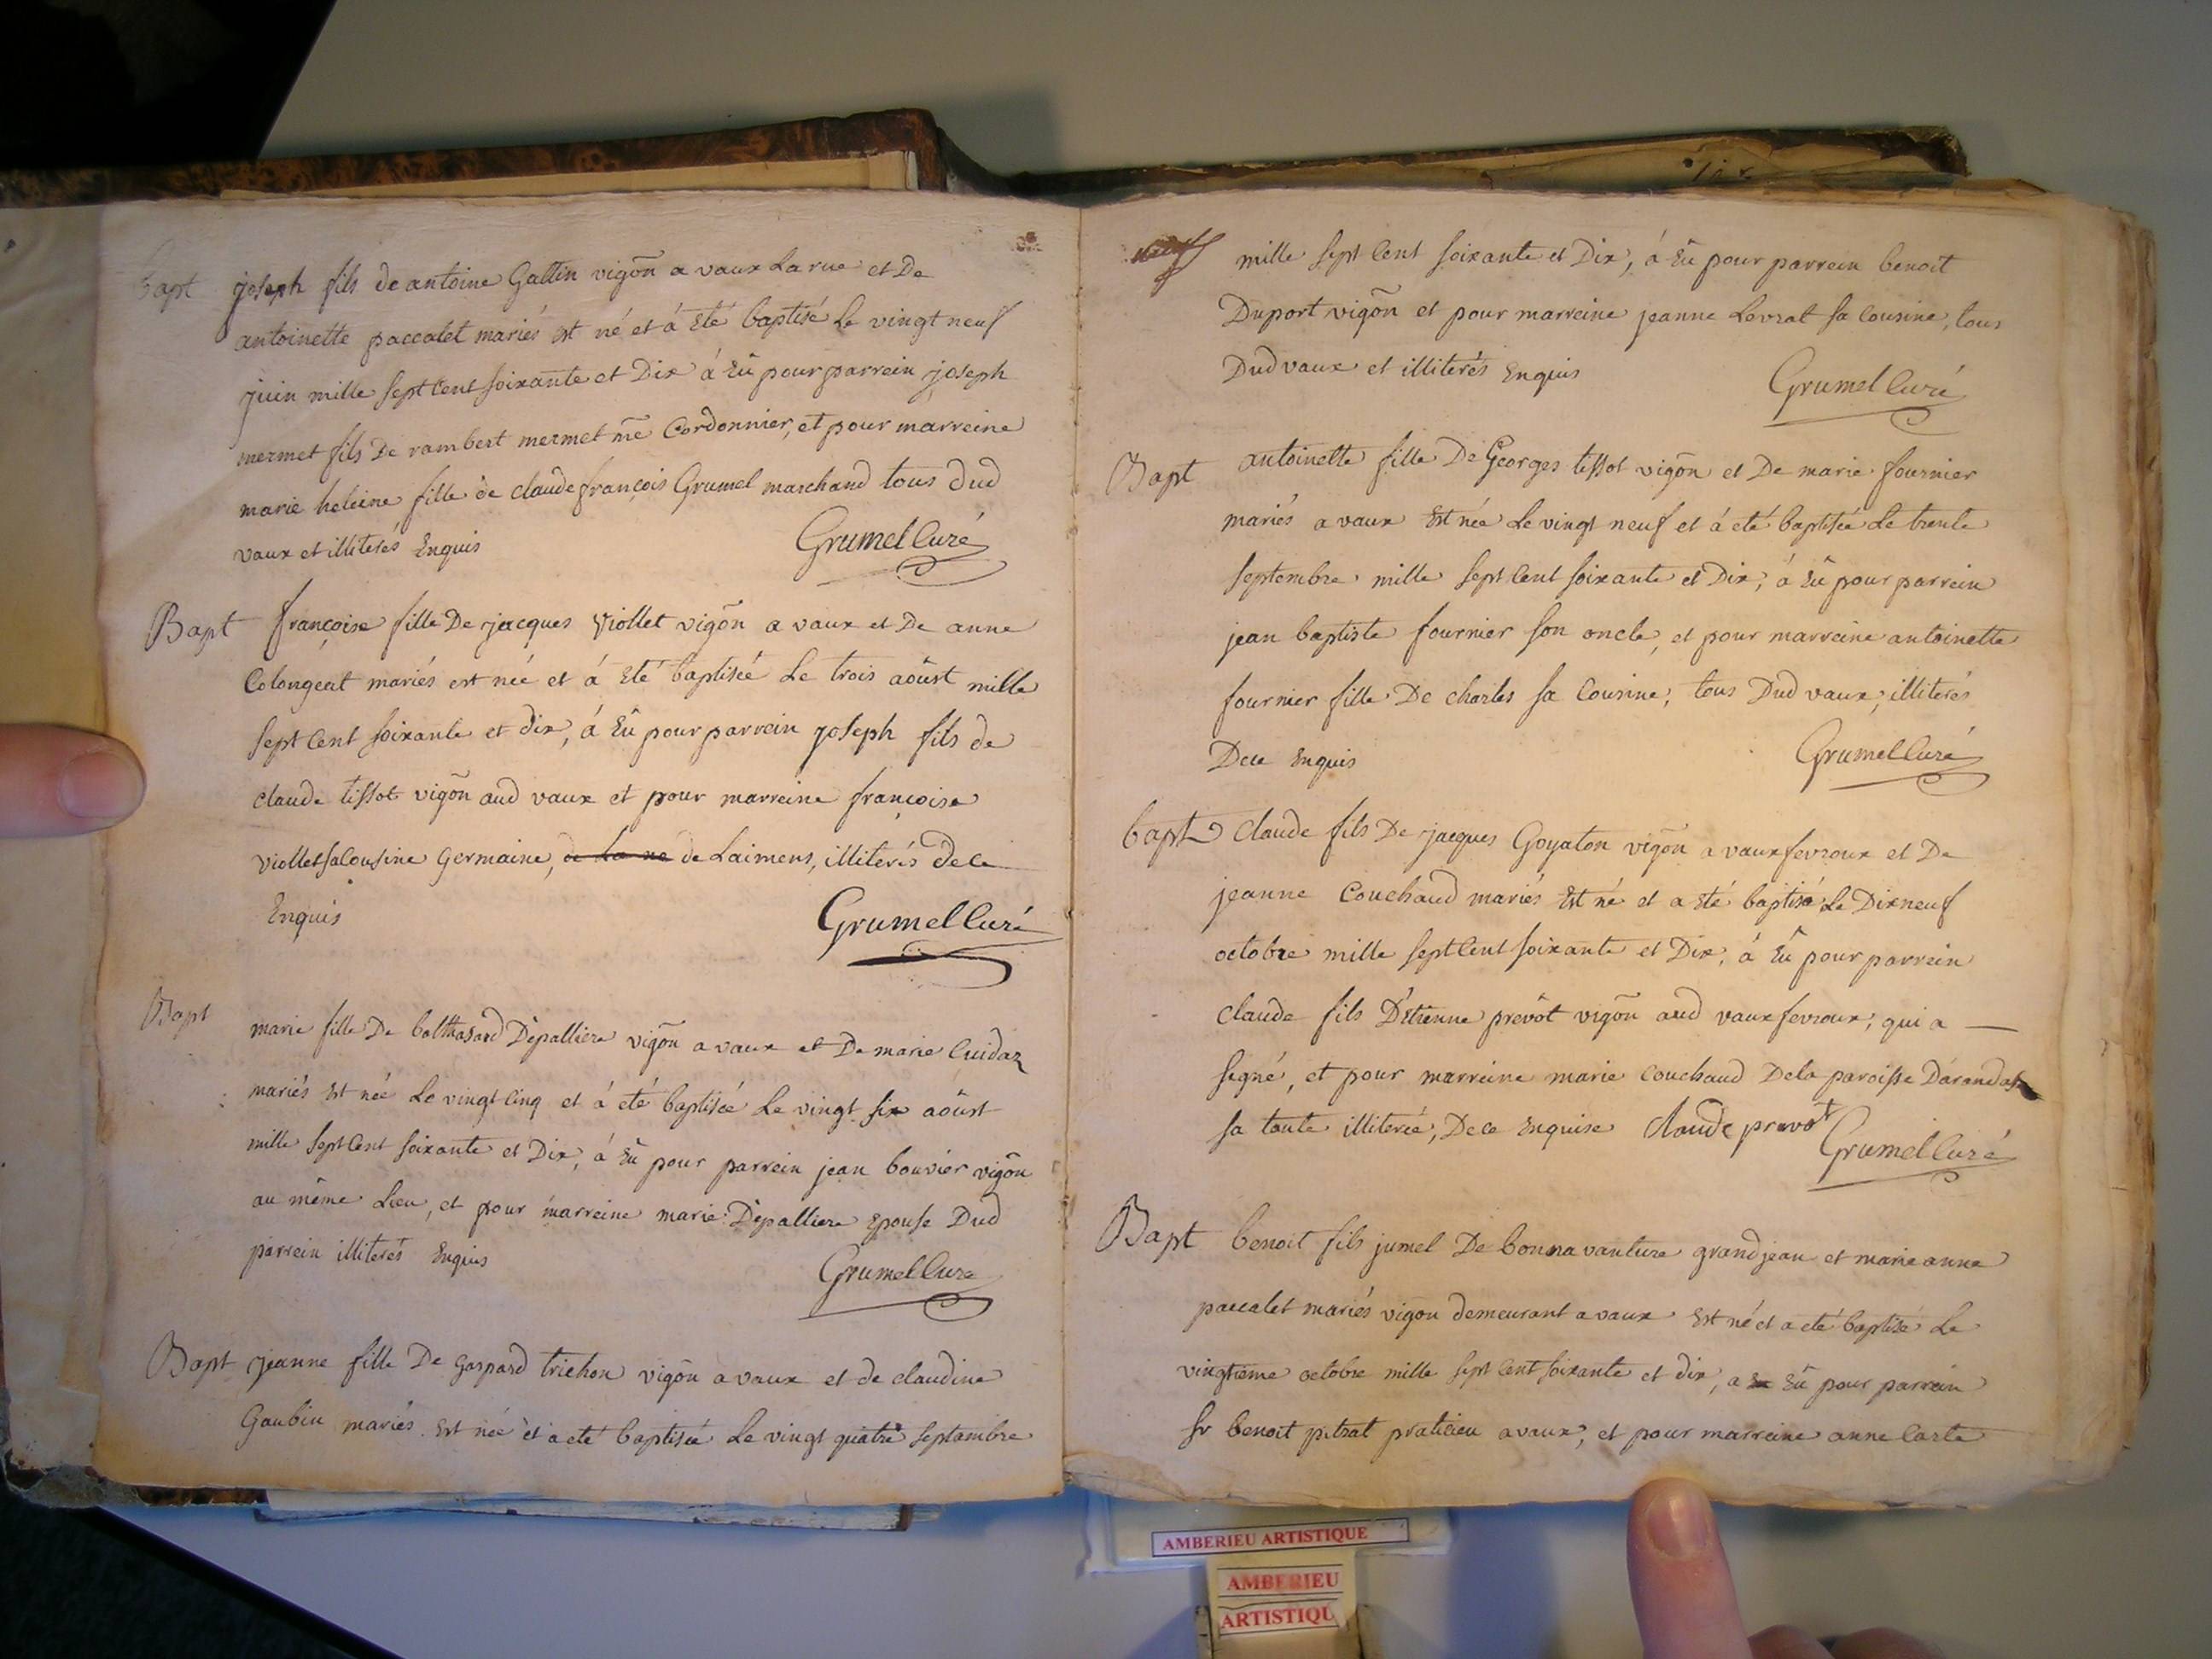 Bapt joseph fils de antoine Gallin vigõn a vaux La rue et De
antoinette paccalet mariés est né et á Eté baptisé Le vingt neuf
juin mille sept Cent soixante et Dix á Eû pour parrein joseph
mermet fils De rambert mermet m̃e Cordonnier, et pour marreine
marie heleine fille de claude françois Grumel marchand tous dud
vaux et illiterés Enquis
Grumel Curé
Bapt françoise fille De jacques Viollet vigõn a vaux et De anne
Colongeat mariés est née et á Eté baptisée Le trois aôust mille
sept Cent soixante et dix, á Eû pour parrein joseph fils de
claude tissot vigõn aud vaux et pour marreine françoise
viollet sa Cousine Germaine, de Laimens, illiterés de ce
Enquis
Grumel Curé
Bapt marie fille De balthasard Dépalliere vigõn a vaux et De marie Cuidaz
mariés Est née Le vingt Cinq et á eté baptisée Le vingt six aôust
mille sept Cent soixante et Dix, á Eû pour parrein jean bouvier vigõn
au même Lieu, et pour marreine marie Dépalliere Epouse Dud
parrein illiterés Enquis
Grumel Cure
Bapt jeanne fille De Gaspard trichon vigõn a vaux et de claudine
Goubin mariés Est née et a eté baptisée Le vingt quatre septembre
mille sept Cent soixante et Dix, á Eû pour parrein benoit
Duport vigõn et pour marreine jeanne Levrat sa Cousine, tous
Dud vaux et illiterés Enquis
Grumel Curé
Bapt antoinette fille De Georges tissot vigõn et De marie fournier
mariés a vaux Est née Le vingt neuf et á eté baptisée Le trente
septembre mille sept Cent soixante et Dix, á Eû pour parrein
jean baptiste fournier son oncle, et pour marreine antoinette
fournier fille De charles sa Cousine, tous Dud vaux, illiterés
De ce Enquis
Grumel Curé
bapt Claude fils De jacques Goyaton vigõn a vaux fevroux et De
jeanne Couchaud mariés Est né et a Eté baptisé Le Dix neuf
octobre mille sept Cent soixante et Dix, á Eû pour parrein
Claude fils D'Etienne prevôt vigõn aud vaux fevroux, qui a
signé, et pour marreine marie Couchaud De la paroisse D'arandas
sa tante illiterée, De ce Enquise Claude prevot
Grumel Curé
Bapt benoit fils jumel De bonnavanture grandjean et marie anne
paccalet mariés vigõn demeurant a vaux Est né et a eté baptisé Le
vingtieme octobre mille sept Cent soixante et dix, a Eû pour parrein
Sr benoit pitrat praticien a vaux, et pour marreine anne Carte
AMBERIEU ARTISTIQUE
AMBERIEU
ARTISTIQU